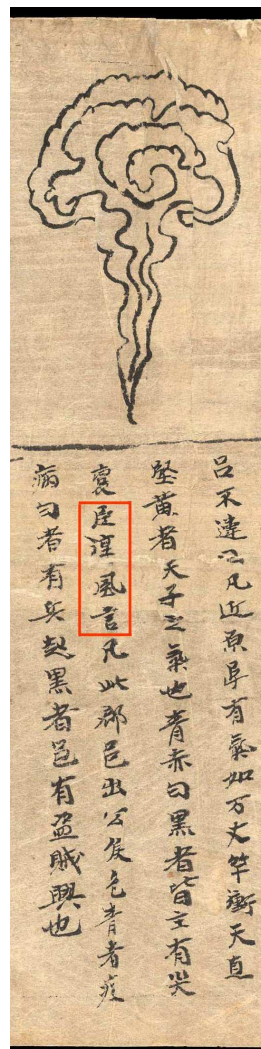 吕不違云凡近原阜有氣如万丈竿衝天直
竪黄者天子之氣也青赤白黑者皆主有灾
喪臣淳風言凡此郡邑出公侯色青者疫
病白者有兵起黑者邑有盗賊興也